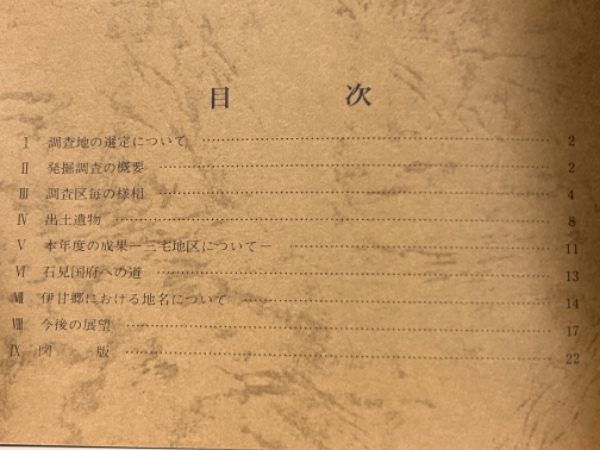 目次
Ⅰ 調査地の選定について 2
Ⅱ 発掘調査の概要 2
Ⅲ 調査区毎の様相 4
Ⅳ 出土遺物 8
Ⅴ 本年度の成果―三宅地区について― 11
Ⅵ 石見国府への道 13
Ⅶ 伊甘郷における地名について 14
Ⅷ 今後の展望 17
Ⅸ 図版 22